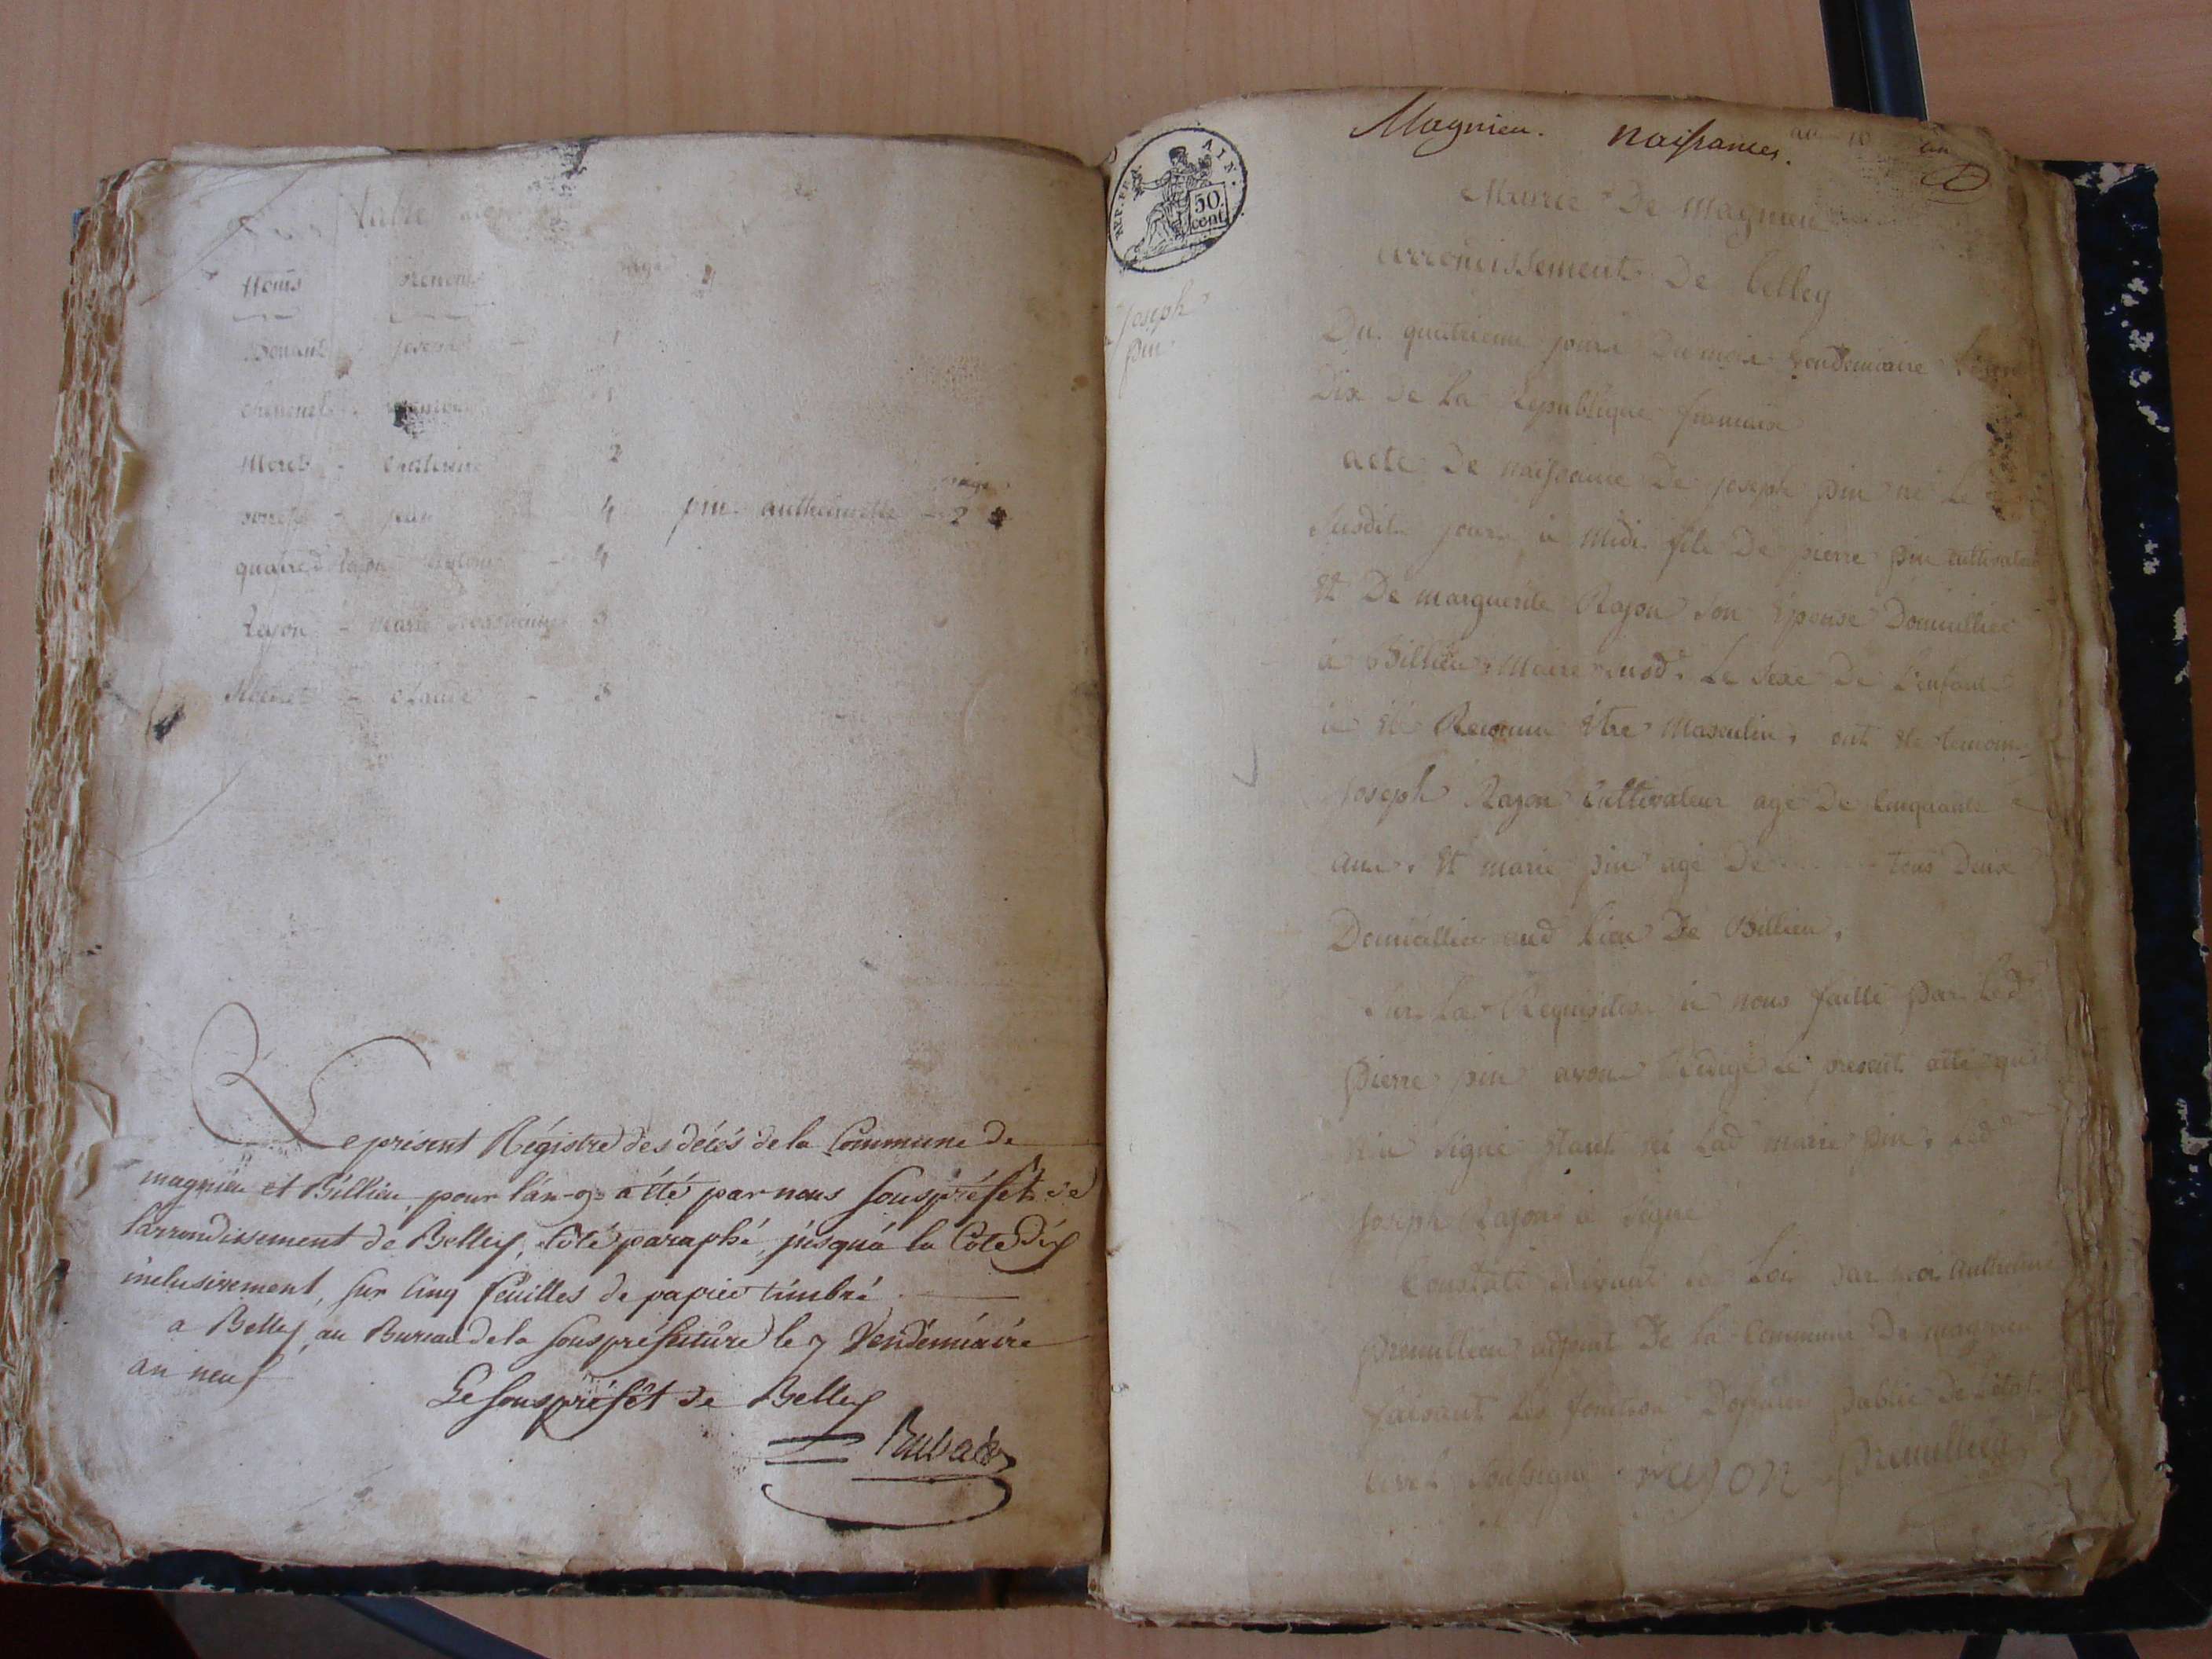 table
Noms prenoms page
1
1
Moret - Catherine 2
jean 4 pin anthelmette - 2
4
Rajon - marie 3
Claude - 3
Le présent Régistre des décés de la Commune de
magnieu et Billieu, pour l'an -9- a été par nous souspréfèt de
l'arrondissement de Belley, Côté paraphé, jusqu'a la Côte dix
inclusivement, sur Cinq feuilles de papier timbré
a Belley, au Bureau de la sousprefecture le 7 Vendémiaire
an neuf
Le sous préfèt de Belley
Magnieu. naissances. an 10 an
REP. FRA. AIN.
50
cent.
Mairie De Magnieu
arrondissement De belley
Joseph
pin
Du quatrieme jour Du mois Vendemiaire L'an
Dix De La Republique francaise
acte De naissance De joseph pin né Le
susdit jour à Midi fils De pierre pin cultivateur
Et De marguerite Rajon son Epouse Domicilliée
à Billieu Mairie susd. Le sexe De L'enfant
à été Reconnu être Masculin, ont été temoins
Joseph Rajon Cultivateur agé De Cinquante
ans. Et marie pin agé De ------ tous Deux
Domicilliés aud lieu De Billieu,
sur La Requisition à nous faitte par Led
pierre pin avons Redigé Le present acte qui
n'a signé lad marie pin. Led
Joseph Rajon à signé
Constaté suivant La Loi par moi anthelme
premillieu adjoint De la Commune De magnieu
faisant Les fonction Dofficier public De L'état
civil soussigné rajon premillieu